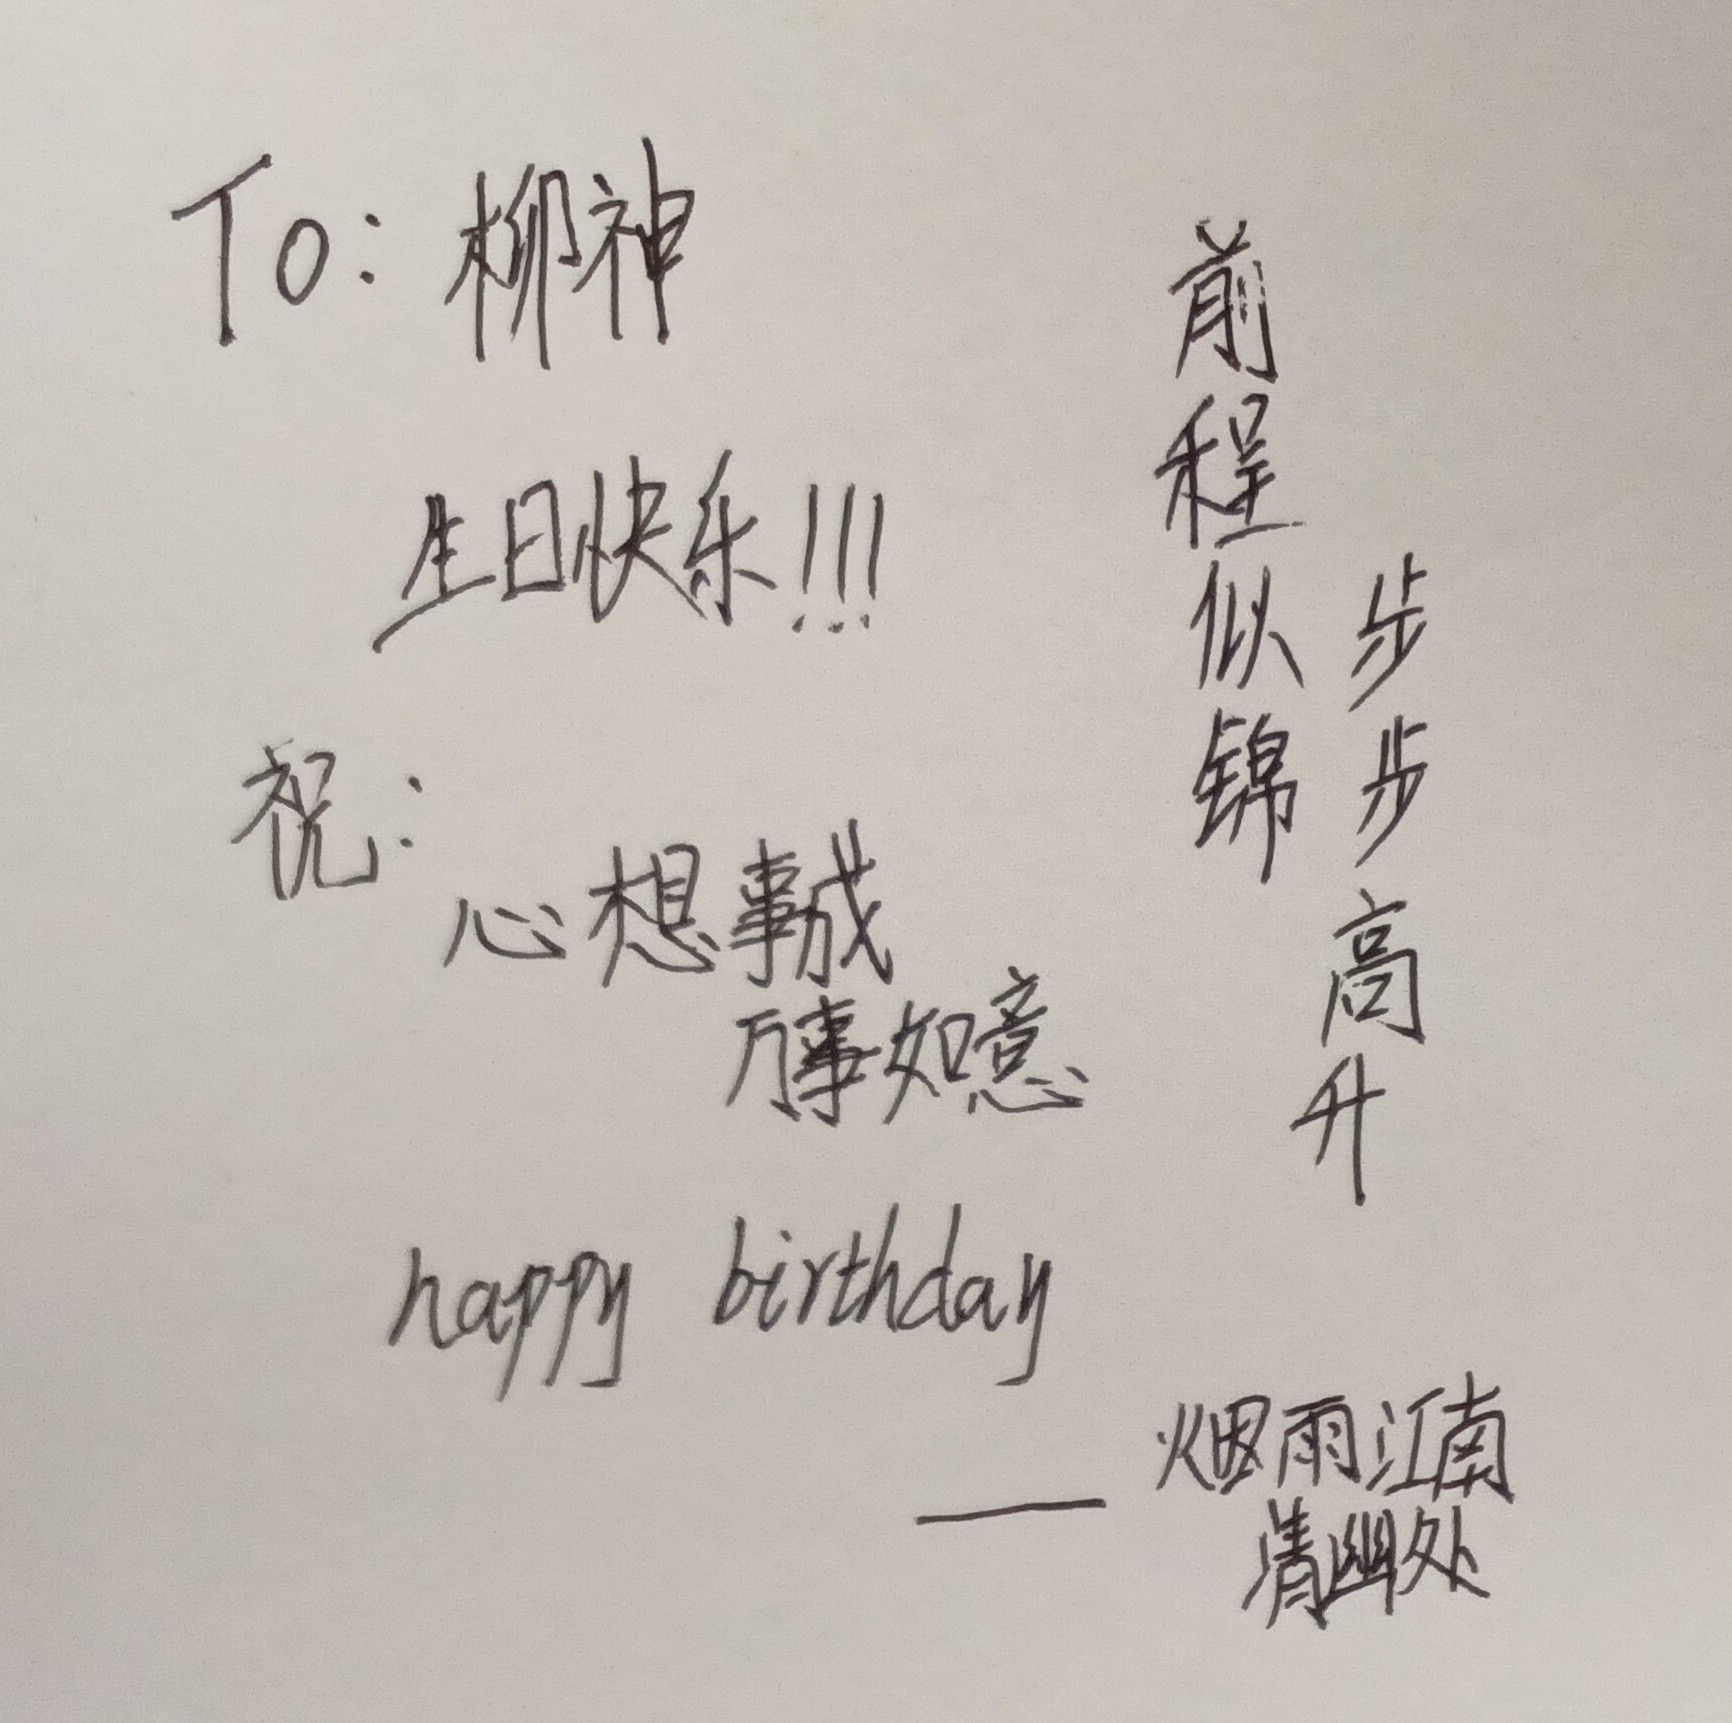 To: 柳神
生日快乐!!!
祝:
心想事成
万事如意
前程似锦
步步高升
happy birthday
— 烟雨江南
清幽处